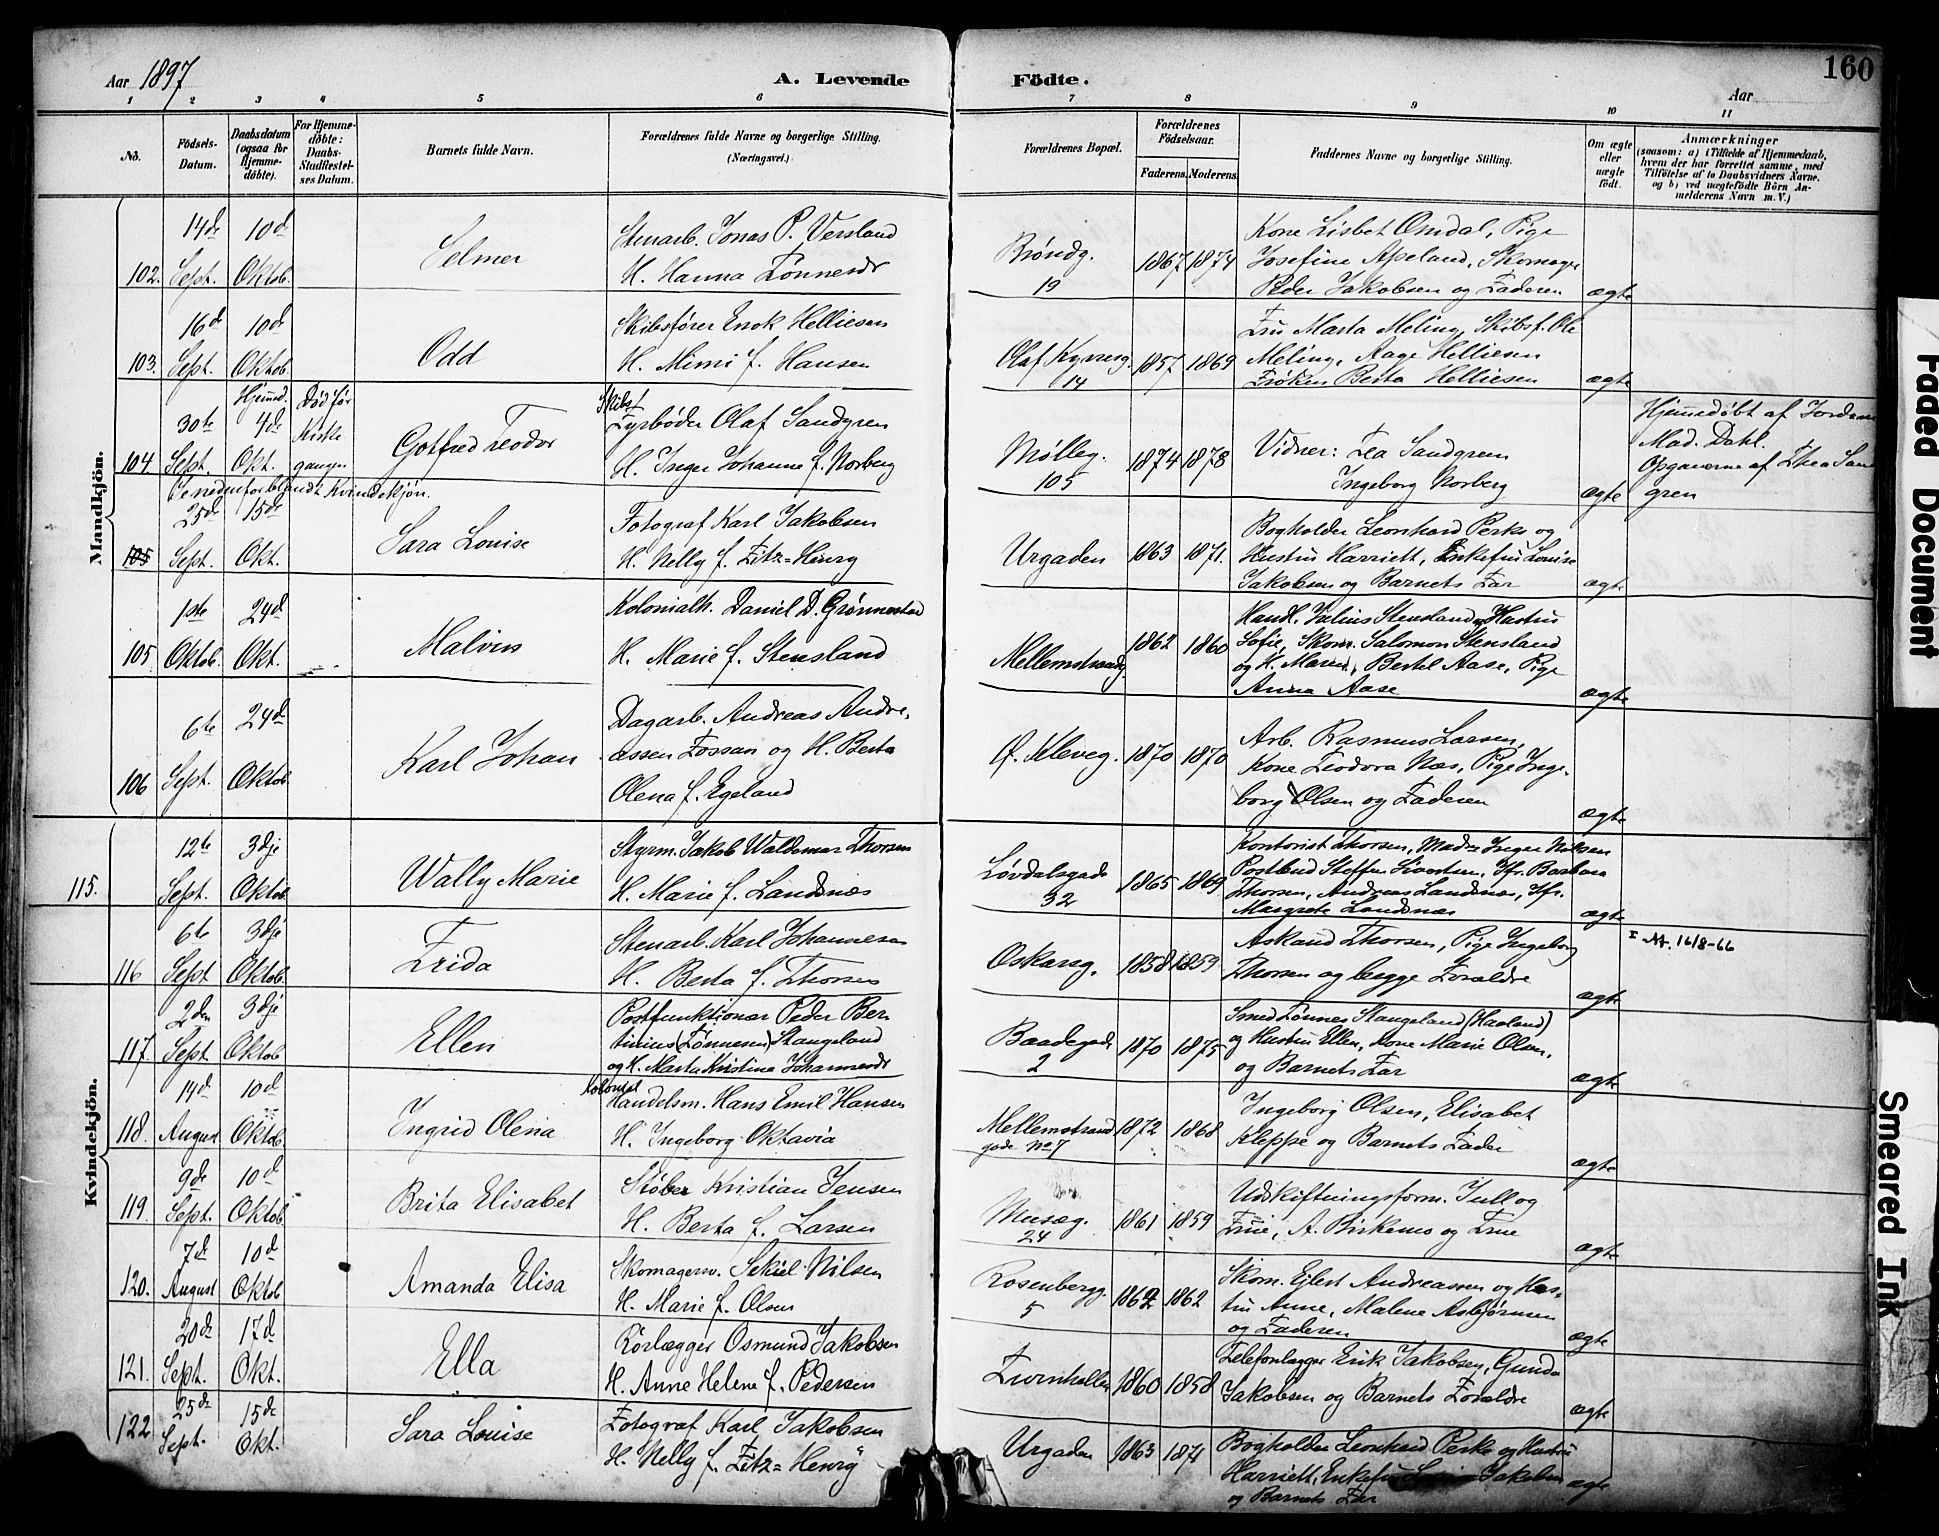 Aar 1897
A. Levende Födte.
160
Aar
1 2 3 4 5 6 7 8 9 10 11
No.
Födsels-Datum.
Daabsdatum (ogsaa for Hjemme-döbte).
For Hjemme-döbte: Daabs-Stadfæstel-ses Datum.
Barnets fulde Navn.
Forældrenes fulde Navne og borgerlige Stilling. (Næringsvei.)
Forældrenes Bopæl.
Forældrenes Födselsaar.
Faderens. Moderens.
Faddernes Navne og borgerlige Stilling.
Om ægte eller uægte födt.
Anmærkninger (saasom: a) i Tilfælde af Hjemmedaab, hvem der har forrettet samme, med Tilföielse af to Daabsvidners Navne, og b) ved uægtefödte Börn An-melderens Navn m. V.)
Mandkjön.
102. 14de Sept. 10d Oktob. Selmer
Stenarb. Jonas P. Versland
H. Hanna Tönnesdr
Bröndg. 19 1867 1874
Kone Lisbet Omdal, Pige
Josefine Apeland, Skomager
Peder Jakobsen og Faderen ægte
103. 16d Sept. 10d Oktob. Odd
Skibsförer Enok Helliesen
H. Mimi f. Hansen
Olaf Kyrresg. 14 1857 1869
Fru Marta Meling, Skibsf. Ole
Meling, Aage Helliesen
Fröken Berta Helliesen ægte
104 30te Sept. Hjemmed. 4de Okt. Död för Kirke gangen Gotfred Teodor
Skibsf Fyrböder Olaf Sandgren
H. Inger Johanne f. Norberg
Mölleg. 105 1874 1878
Vidner: Tea Sandgren
Ingeborg Norberg ægte
Hjemmedöbt af Jordem
Mad. Dahl.
Opgaverne af Thea San
gren
Se nedenfor blandt Kvindekjön.
105 25d Sept. 15de Okt. Sara Louise
Fotograf Karl Jakobsen
H. Nelly f. Fitz=Henry
Urgaden 1863 1871.
Bogholder Leonhard Perks og
Hustru Harriett, Enkefru Louise
Jakobsen og Barnets Far ægte
105 1ste Oktob. 24d Okt. Malvin
Kolonialh. Daniel D. Grönnestad
H. Marie f. Stensland
Mellemstrandg. 1862 1860
Handl. Julius Stensland, Hustru
Sofie, Skom. Salomon Stensland
og H. Marie, Bertel Aase, Pige
Anna Aase ægte
106 6te Sept. 24d Oktob. Karl Johan
Dagarb. Andreas Andre-
assen Fossan og H. Berta
Olena f. Egeland
Ö. Kleveg. 1870 1870
Arb. Rasmus Larsen,
Kone Teodora Næs, Pige Inge-
borg Olsen og Faderen ægte
Kvindekjön.
115. 12te Sept. 3dje Oktob. Wally Marie
Styrm. Jakob Waldemar Thorsen
H. Marie f. Landsnæs
Lövdalsgade 32 1865 1869
Kontorist Thorsen, Mad. Inger Nilsen
Postbud Steffen Sivertsen, Jfr. Barbara
Thorsen, Andreas Landsnæs, Jfr.
Margrete Landsnæs ægte
116 6te Sept 3dje Oktob. Frida
Stenarb. Karl Johannesen
H. Berta f. Thorsen
Oskarsg. 1858 1859
Askaud Thorsen, Pige Ingeborg
Thorsen og begge Foræ­ldre ægte
16/8-66
117. 2den Sept 3dje Oktob Ellen
Postfunktionær Peder Ber
tinius (Tönnesen) Stangeland
og H. Marta Kristine Johannesdr
Baadegade 2 1870 1875
Smed Tönnes Stangeland (Haaland)
og Hustru Ellen, Kone Marie Olsen,
og Barnets Far ægte
118. 14d August 10d Oktob. Ingrid Olena
Kolonial Handelsm. Hans Emil Hansen
H. Ingeborg Oktavia
Mellemstrand gade No 7 1872 1868
Ingeborg Olsen, Elisabet
Kleppe og Barnets Fader ægte
119. 9de Sept. 10d Oktob. Brita Elisabet
Stöber Kristian Jensen
H. Berta f. Larsen
Musæg. 24 1861 1859
Udskiftningsform. Jull og
Frue, A. Birkemo og Frue ægte
120. 7d August 10d Oktob Amanda Elisa
Skomagersv. Sekiel Nilsen
H. Marie f. Olsen
Rosenbergg. 5 1862 1862
Skom. Ejlert Andreassen og Hus-
tru Anne, Malene Asbjörnsen
og Faderen ægte
121. 20de Sept. 17d Okt. Ella
Rörlægger Osmund Jakobsen
H. Anne Helene f. Pedersen
Turnhallen 1860 1858
Telefonlægger Erik Jakobsen, Gunda
Jakobsen og Barnets Forældre ægte
122 25de Sept. 15de Okt. Sara Louise
Fotograf Karl Jakobsen
H. Nelly f. Fitz=Henry
Urgaden 1863 1871
Bogholder Leonhard Perks og Hustru
Harriett, Enkefru Jakobsen
og Barnets Far ægte
Faded Document
Smeared Ink